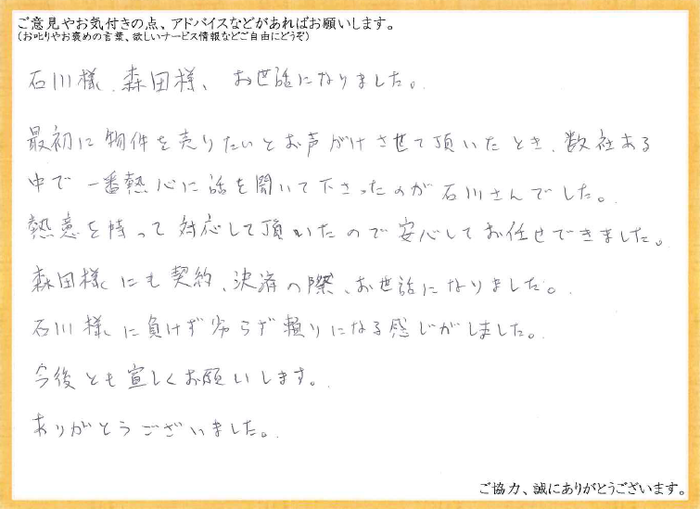 ご意見やお気付きの点、アドバイスなどがあればお願いします。
(お叱りやお褒めの言葉、欲しいサービス情報などご自由にどうぞ)
石川様、森田様、お世話になりました。
最初に物件を売りたいとお声がけさせて頂いたとき、数社ある
中で一番熱心に話を聞いて下さったのが石川さんでした。
熱意を持って対応して頂いたので安心してお任せできました。
森田様にも契約、決済の際、お世話になりました。
石川様に負けず劣らず頼りになる感じがしました。
今後とも宜しくお願いします。
ありがとうございました。
ご協力、誠にありがとうございます。